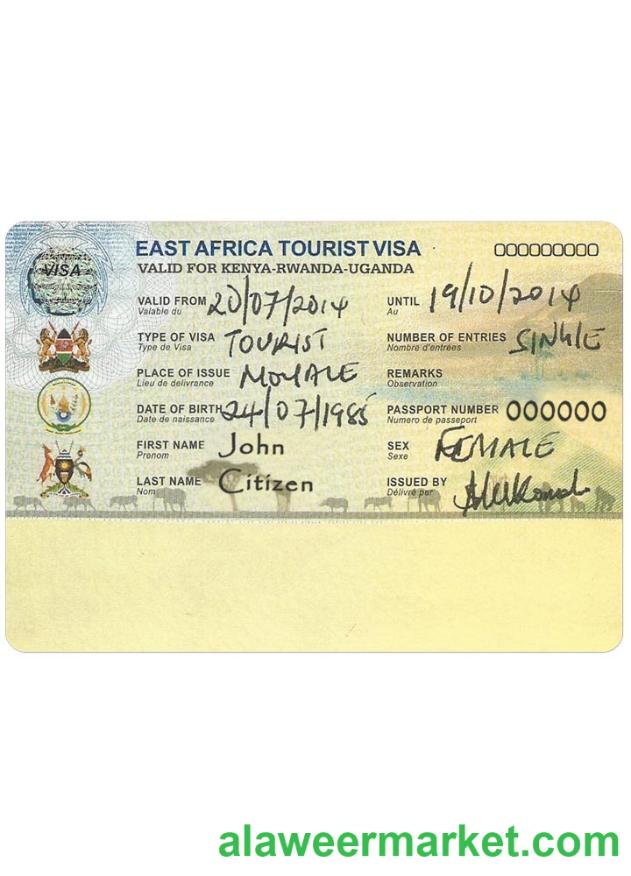 VISA
EAST AFRICA TOURIST VISA
000000000
VALID FOR KENYA-RWANDA-UGANDA
VALID FROM 20/07/2014 UNTIL 19/10/2014
Valable du Au
TYPE OF VISA TOURIST NUMBER OF ENTRIES SINGLE
Type de Visa Nombre d'entrées
PLACE OF ISSUE MOYALE REMARKS
Lieu de delivrance Observation
DATE OF BIRTH 24/07/1985 PASSPORT NUMBER 000000
Date de naissance Numero de passeport
FIRST NAME John SEX FEMALE
Prenom Sexe
LAST NAME Citizen ISSUED BY
Nom Délivré par
alaweermarket.com